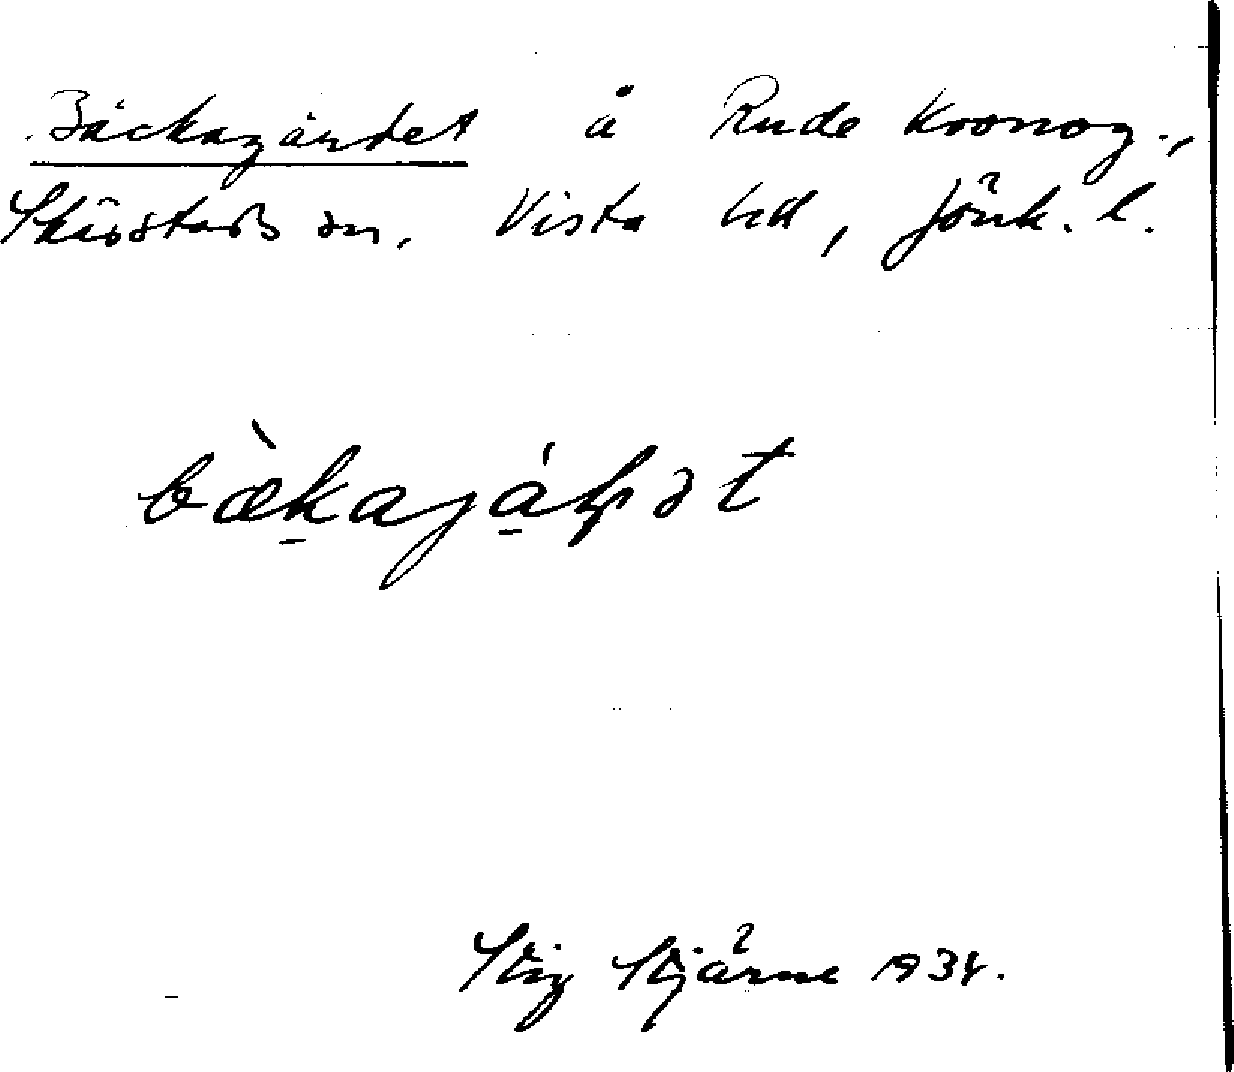 Bäckagärdet å Rude Kronog.,
Skärstads sn, Vista hd, Jönk. l.
bæ̀kajáḥət
Stig Stjärne 1934.